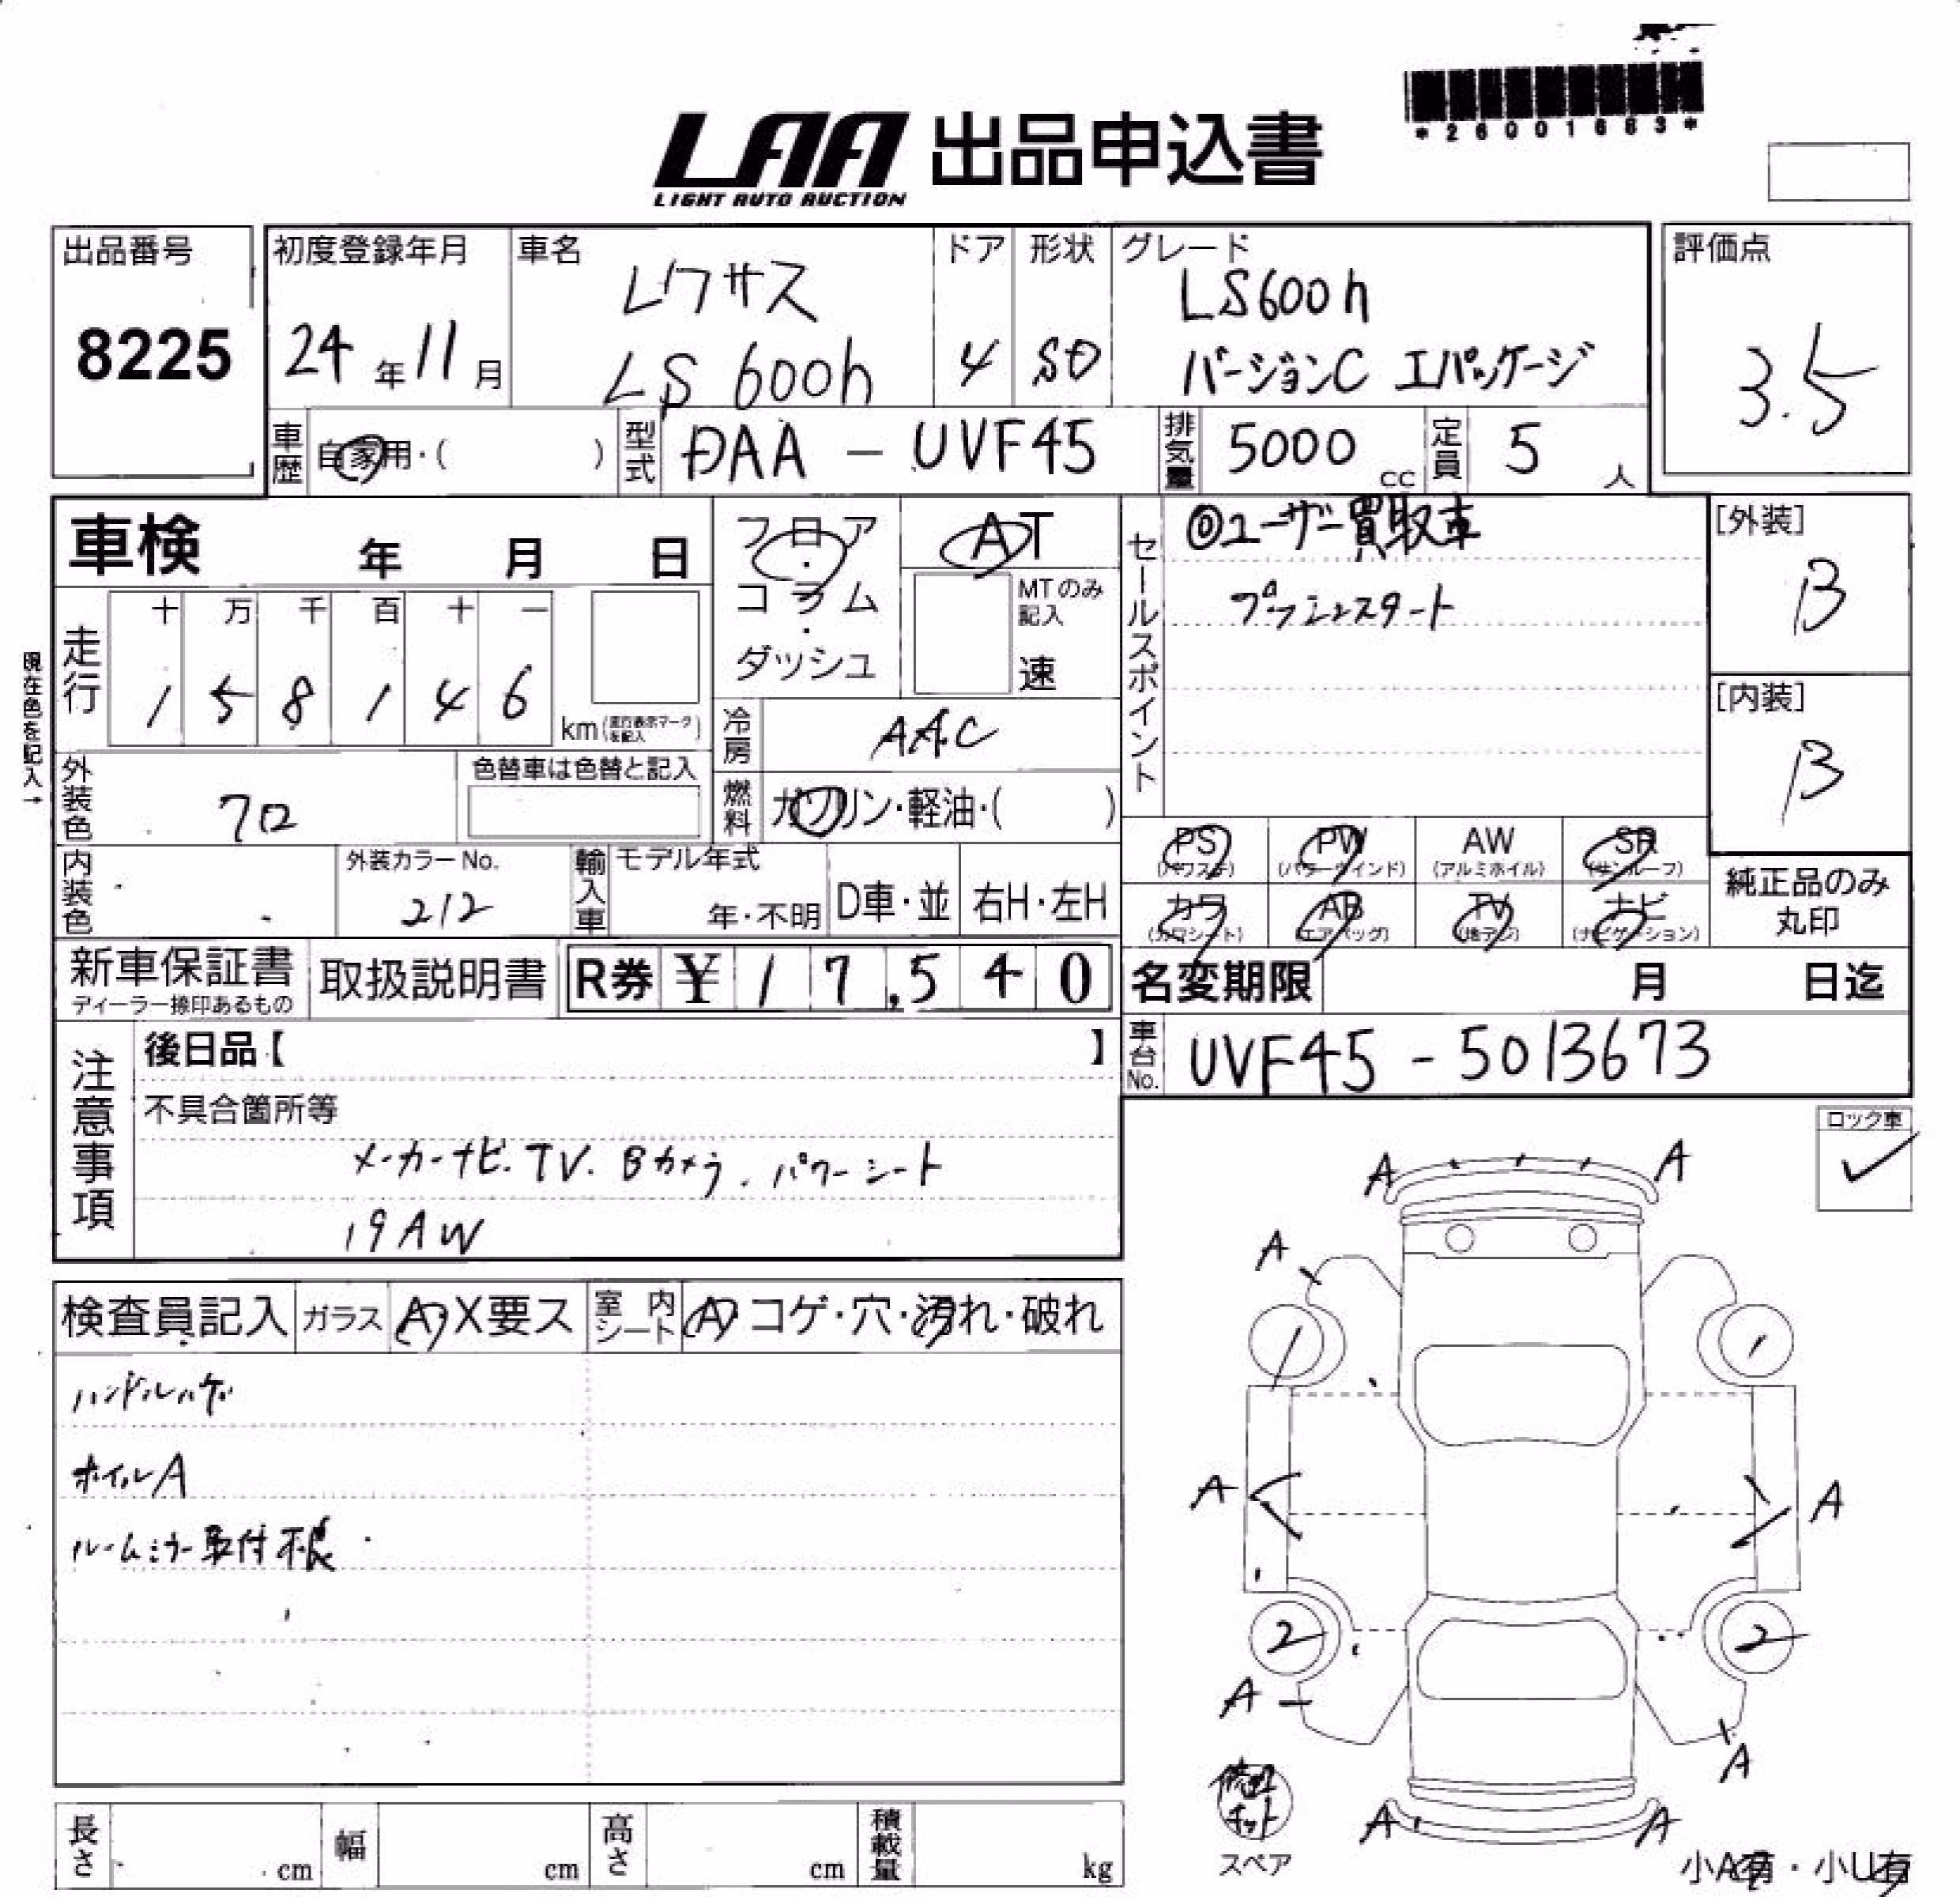 *26001663*
LAA 出品申込書
LIGHT AUTO AUCTION
出品番号
8225
初度登録年月
24年11月
車名
レクサス
LS 600h
ドア
4
形状
SD
グレード
LS600h
バージョンC Iパッケージ
評価点
3.5
車歴
自家用・( )
型式
DAA - UVF45
排気量
5000 cc
定員
5 人
車検 年 月 日
フロア・コラム・ダッシュ
AT
MTのみ記入
速
セールスポイント
◎ユーザー買取車
プッシュスタート
[外装]
B
[内装]
B
現在色を記入→
走行
十 万 千 百 十 一
1 5 8 1 4 6
km(走行表示マークを記入)
冷房
AAC
燃料
ガソリン・軽油・( )
外装色
クロ
色替車は色替と記入
内装色
外装カラーNo.
212
輸入車
モデル年式
年・不明
D車・並
右H・左H
PS (パワステ)
PW (パワーウインド)
AW (アルミホイル)
SR (サンルーフ)
カワ (カワシート)
AB (エアバッグ)
TV (地デジ)
ナビ (ナビゲーション)
純正品のみ
丸印
新車保証書
ディーラー捺印あるもの
取扱説明書
R券 ¥17,540
名変期限 月 日迄
車台No.
UVF45 - 5013673
注意事項
後日品【 】
不具合箇所等
メーカーナビ.TV.Bカメラ.パワーシート
19AW
ロック車
✓
検査員記入
ガラス
A・X要ス
室内シート
A・コゲ・穴・汚れ・破れ
ハンドルハゲ
ホイルA
ルームミラー取付不良
A A
A
A A
2 2
A
A
A A
修理キット
スペア
小A有・小U有
長さ cm
幅 cm
高さ cm
積載量 kg